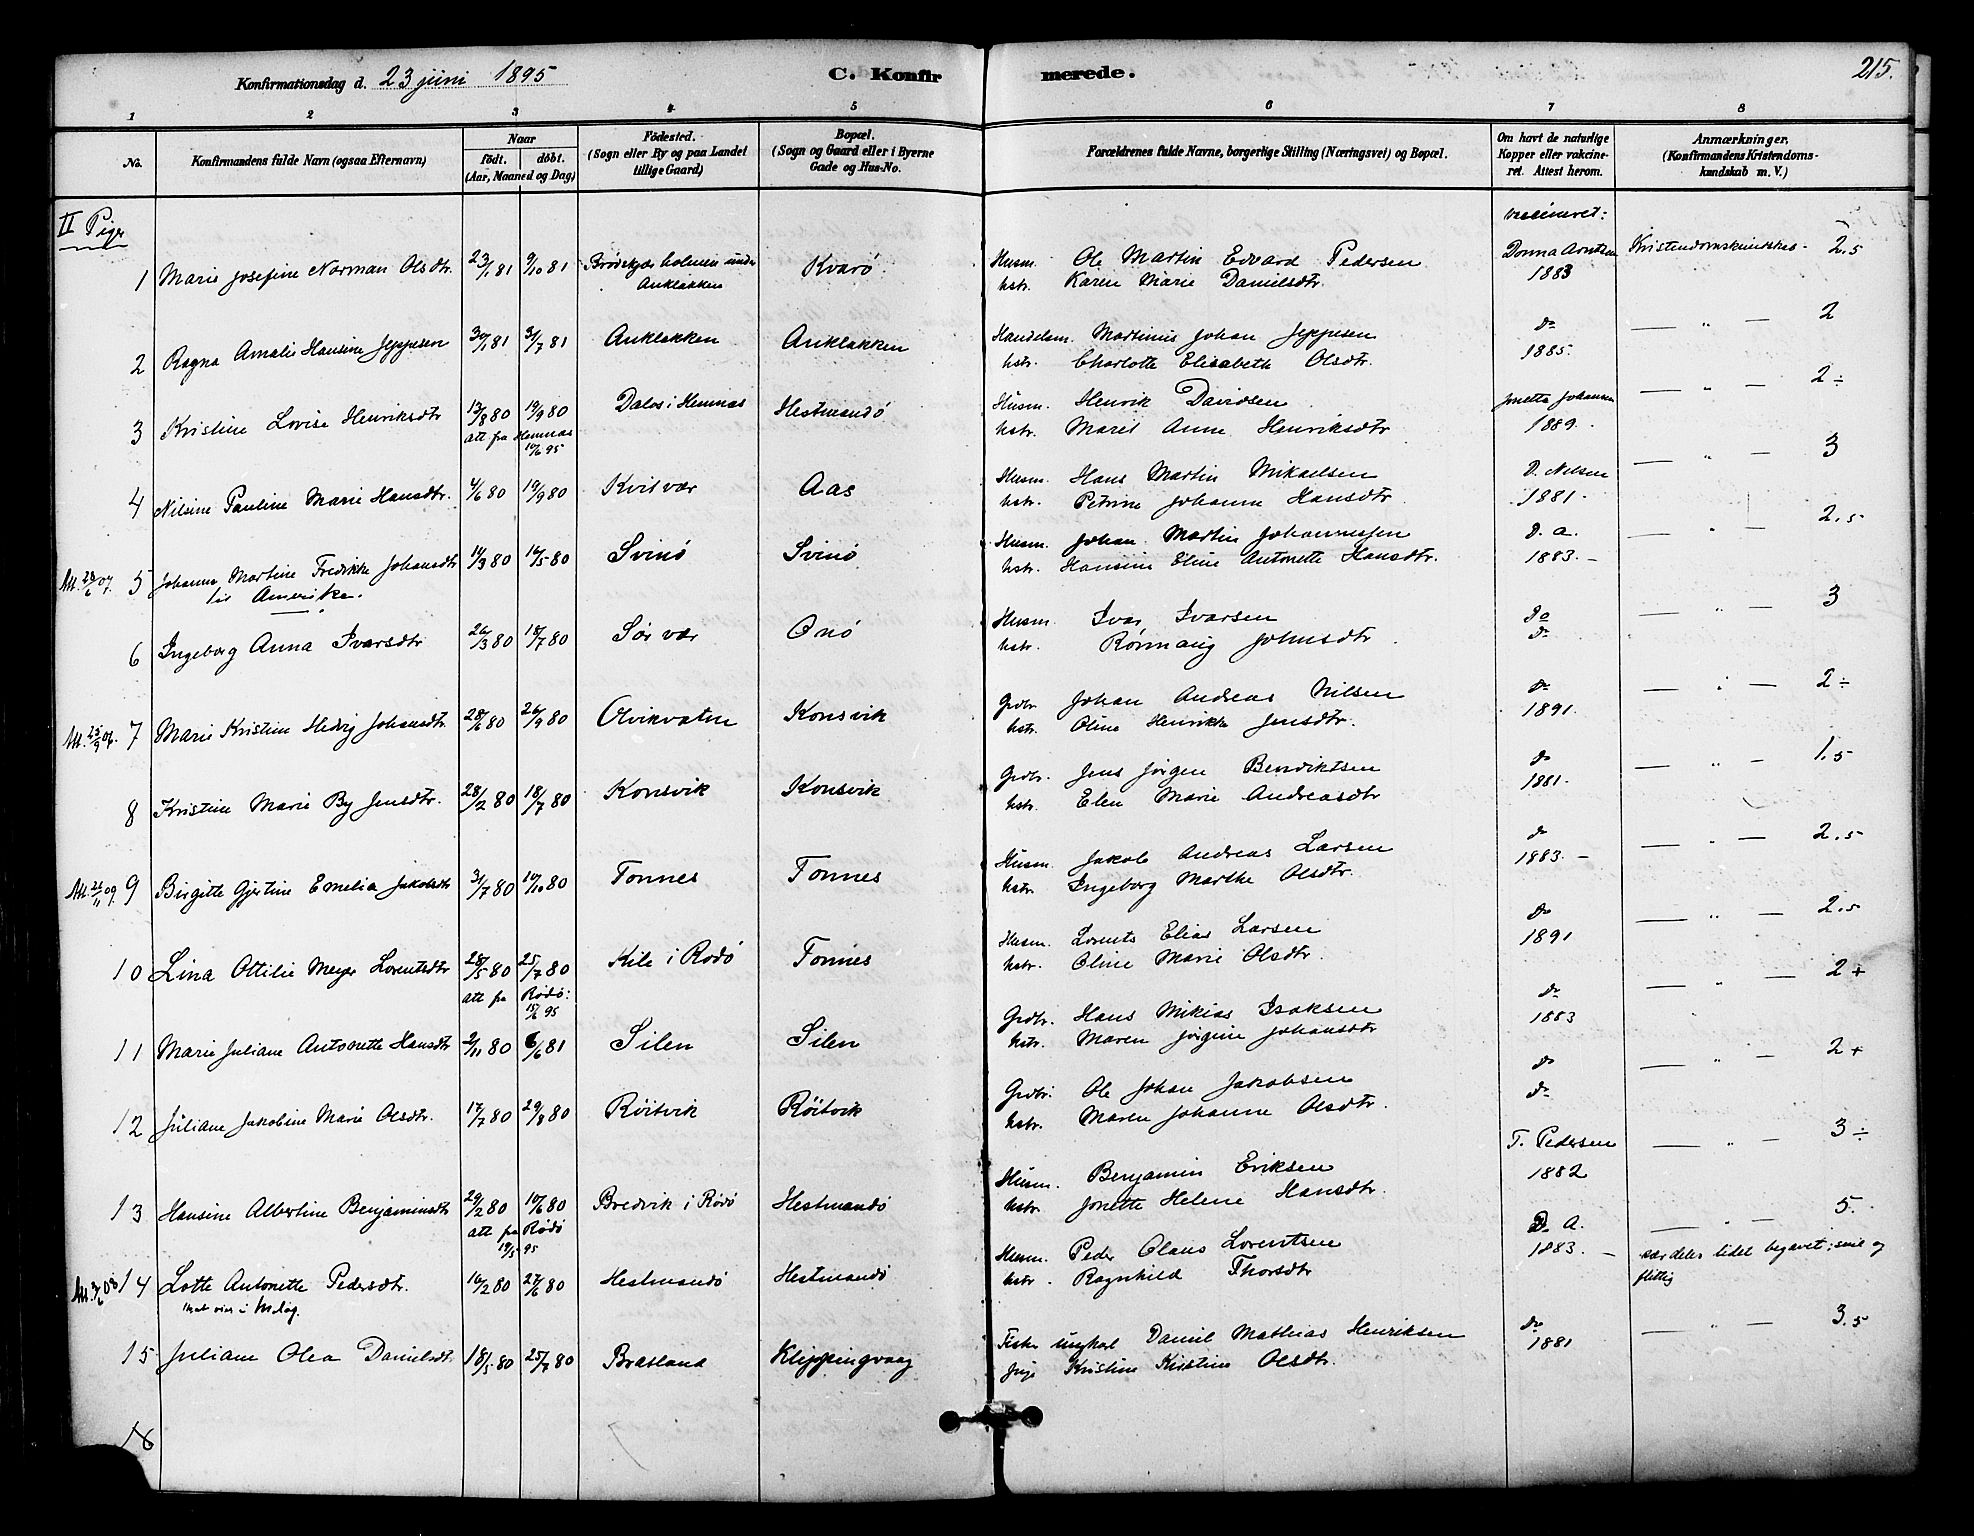 Konfirmationsdag d. 23 juni 1895
C. Konfirmerede.
215.
1 2 3 4 5 6 7 8
No.
Konfirmandens fulde Navn (ogsaa Efternavn)
Naar
født. døbt.
(Aar, Maaned og Dag)
Fødested.
(Sogn eller By og paa Landet
tillige Gaard)
Bopæl.
(Sogn og Gaard eller i Byerne
Gade og Hus-No.
Forældrenes fulde Navne, borgerlige Stilling (Næringsvei) og Bopæl.
Om havt de naturlige
Kopper eller vakcine-
ret. Attest herom.
Anmærkninger.
(Konfirmandens Kristendoms-
kundskab m. V.)
II Piger
vaccineret:
1 Marie Josefine Norman Olsdtr. 23/1 81 9/10 81 under Anklakken Kvarö Husm. Ole Martin Edvard Pedersen Donna Arntsen Kristendomskundskab - 2.5
hstr. Karen Marie Danielsdtr. 1883
2 Ragna Amalie Hansine Jeppesen 30/1 81 31/7 81 Anklakken Anklakken Handelsm. Martinus Johan Jeppesen do — " — 2
hstr. Charlotte Elisabeth Olsdtr. 1885.
3 Kristine Lovise Henriksdtr 13/8 80 19/9 80 Dalos i Hemnæs Hestmandö Husm. Henrik Davidsen Jonetta Johansen — " — 2÷
att fra Hemnæs 10/6 95 hstr. Marit Anne Henriksdtr 1889.
4 Nilsine Pauline Marie Hansdtr. 4/6 80 19/9 80 Kvitvær Aas Husm. Hans Martin Mikaelsen D. Nilsen — " — 3
hstr. Petrine Johanna Hansdtr. 1881.
Utt. 28/6 07. 5 Johanna Martine Fredrikke Johansdtr 14/3 80 16/5 80 Svinö Svinö Husm. Johan Martin Johannessen D. A. — " — 2.5
til Amerika. hstr. Hansine Eline Antonette Hansdtr. 1883.
6 Ingeborg Anna Ivarsdtr 26/3 80 18/7 80 Sörvær Onö Husm. Ivar Ivarsen do — " — 3
hstr. Rönnaug Johnsdtr. do
Utt. 25/9 06. 7 Marie Kristine Hedvig Johansdtr 28/6 80 26/9 80 Olvikvatn Konsvik Grdbr. Johan Andreas Nilsen do — " — 2÷
hstr. Oline Henrikke Jensdtr. 1891.
8 Kristine Marie By Jensdtr. 28/2 80 18/7 80 Konsvik Konsvik Grdbr. Jens Jörgen Bendiktsen do — " — 1.5
hstr. Elen Marie Andreasdtr 1881.
Utt. 21/11 09. 9 Birgitte Gjertine Emelia Jakobsdtr 31/7 80 10/10 80 Tonnes Tonnes Husm. Jakob Andreas Larsen do — " — 2.5
hstr. Ingeborg Marthe Olsdtr. 1883.
10 Lina Ottilie Meyer Lorentsdtr 28/5 80 25/7 80 Kile i Rödö Tonnes Husm. Lorents Elias Larsen do — " — 2.5
att fra Rödö: 15/6 95 hstr. Oline Marie Olsdtr. 1891
11 Marie Juliane Antonette Hansdtr 2/11 80 6/6 81 Silen Silen Grdbr. Hans Mikias Isaksen do — " — 2+
hstr. Maren Jörgine Johansdtr 1883
12 Juliane Jakobine Marie Olsdtr. 17/7 80 29/8 80 Röitvik Röitvik Grdbr. Ole Johan Jakobsen do — " — 2+
hstr. Maren Johanne Olsdtr. do
13 Hansine Albertine Benjaminsdtr 29/2 80 10/6 80 Bredvik i Rödö Hestmandö Husm. Benjamin Eriksen T. Pedersen — " — 3÷
att fra Rödö 19/5 95 hstr. Jonette Helene Hansdtr. 1882
Utt. 3/6 03 14 Lotte Antonette Pedersdtr. 16/2 80 27/6 80 Hestmandö Hestmandö Husm. Peder Olaus Lorentsen D. A. — " — 5.
hstr. Ragnhild Thorsdtr 1883. særdeles lidet begavet; snil og
flittig
15 Juliane Olea Danielsdtr 18/5 80 25/7 80 Bratland Klippingvaag Fisker ungkarl Daniel Mathias Henriksen do — " — 3.5
pige Kristine Kirstine Olsdtr. 1881
16